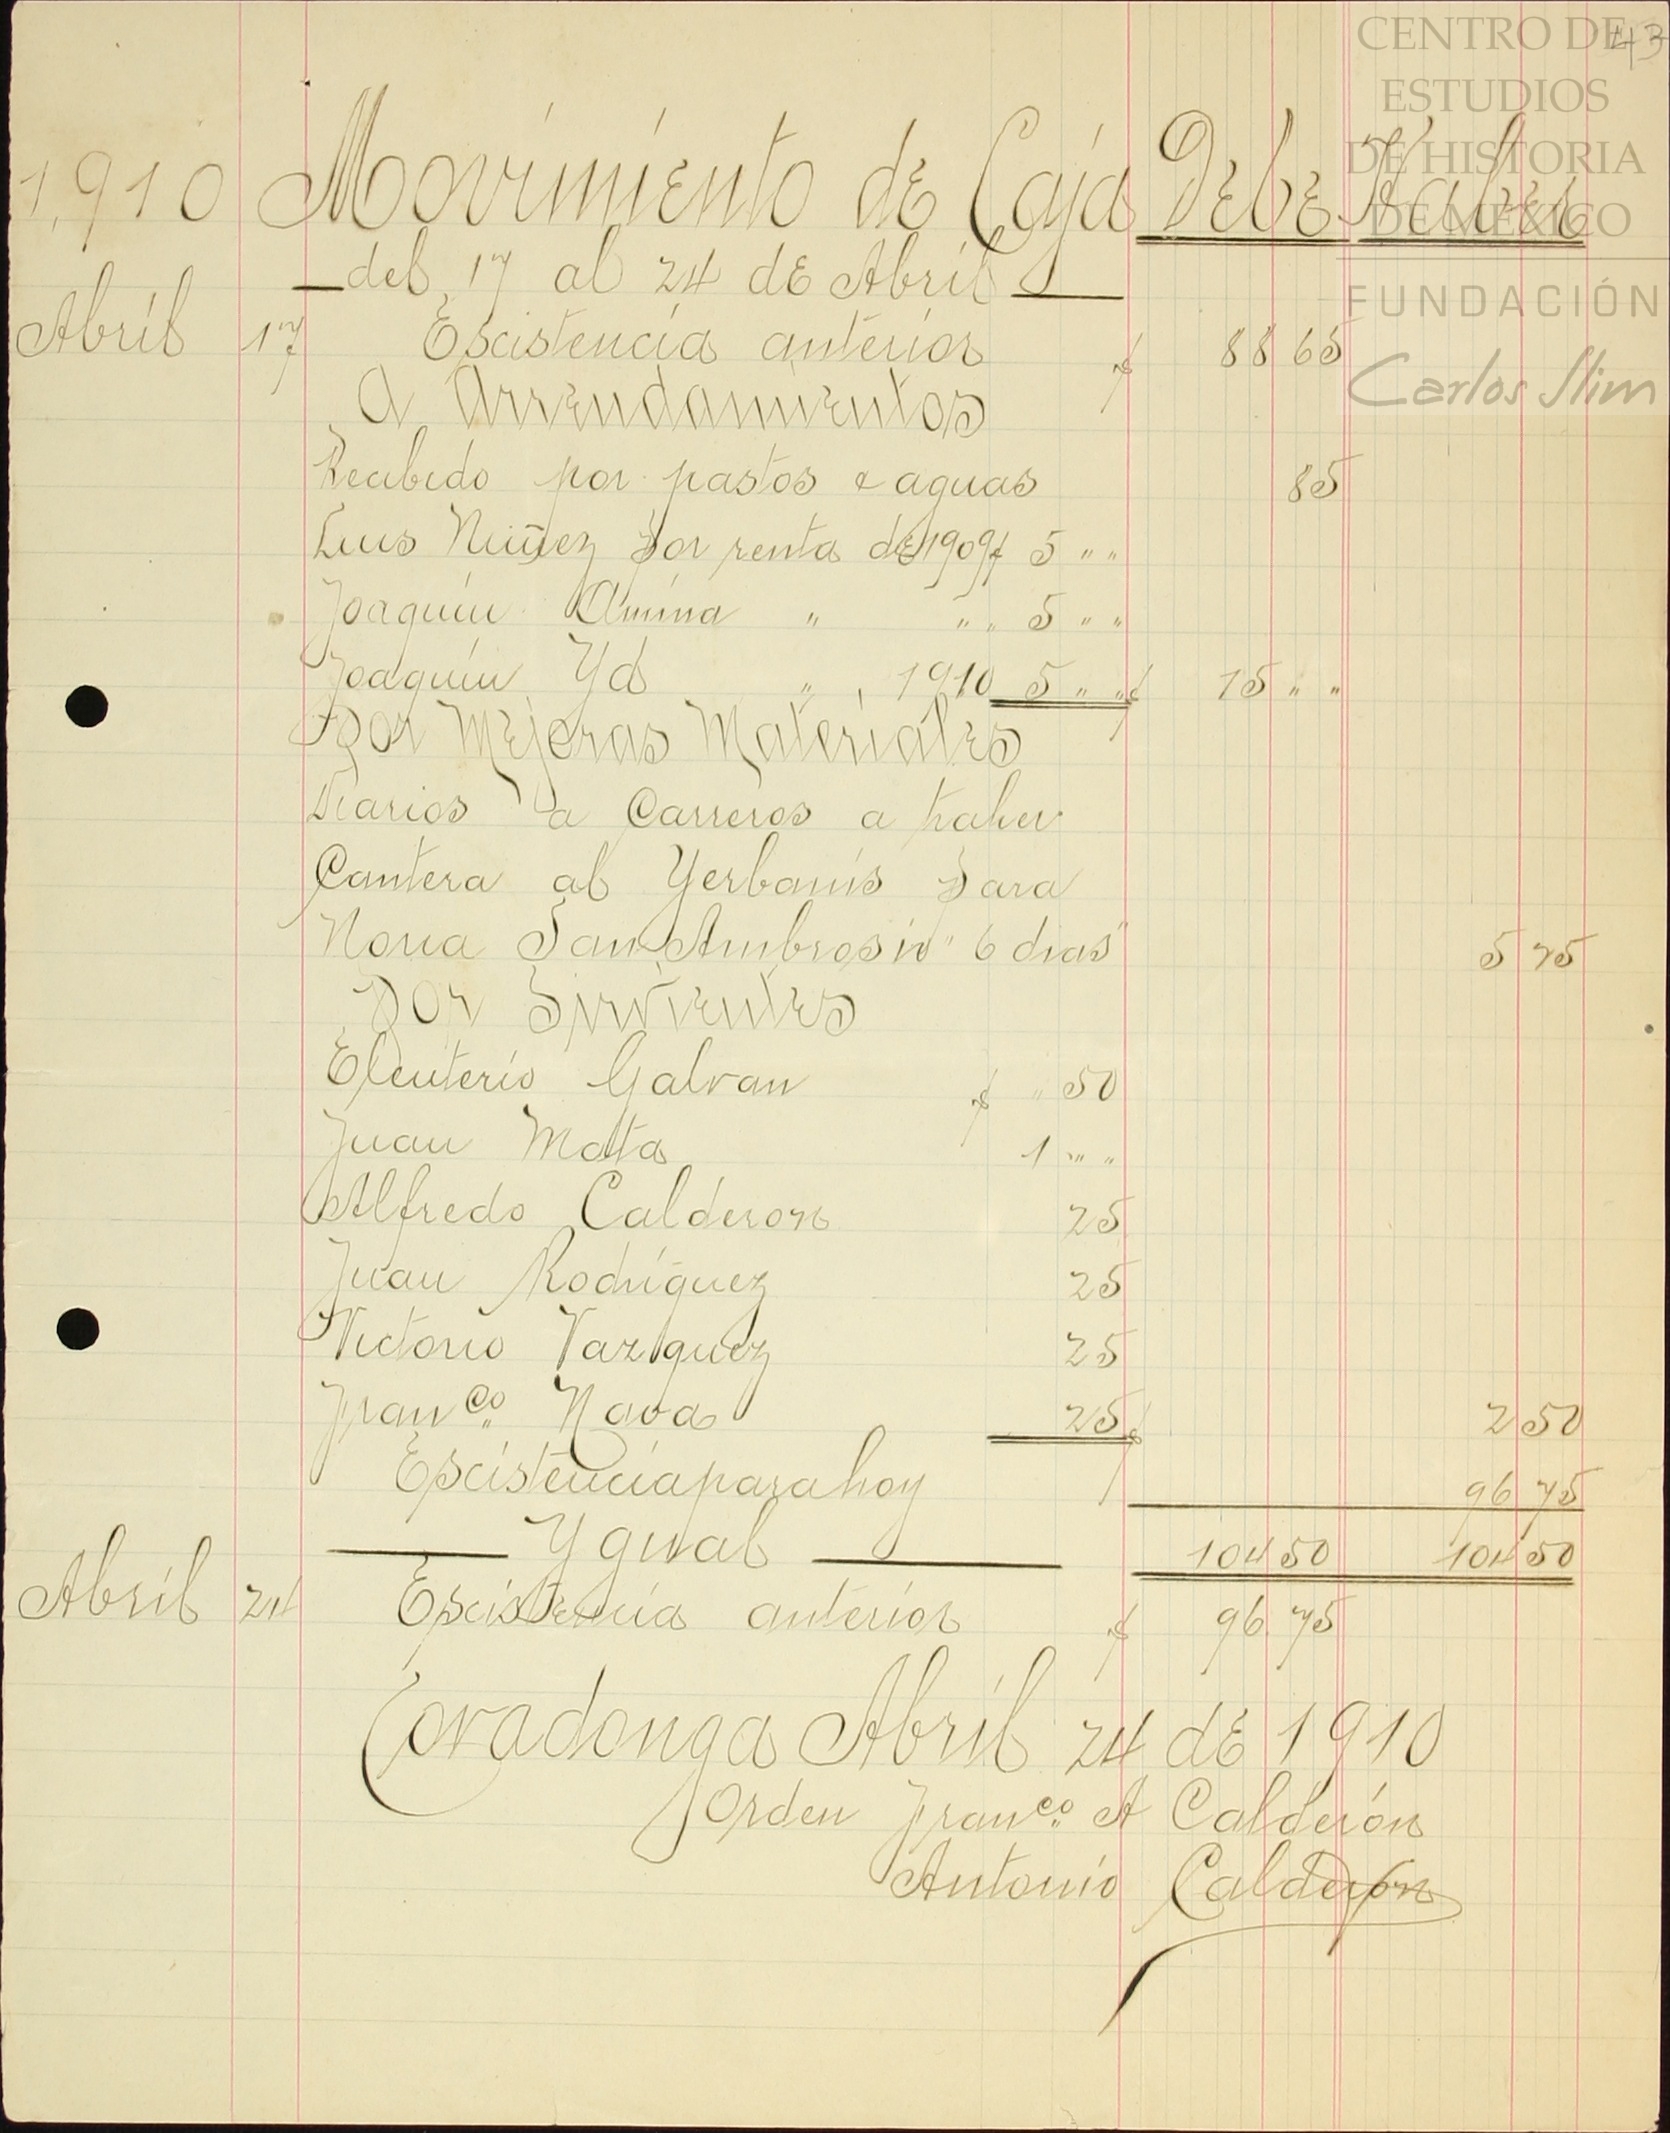 CENTRO DE
ESTUDIOS
DE HISTORIA
DE MÉXICO
FUNDACIÓN
Carlos Slim
43
1,910 Movimiento de Caja Debe Haber
del 17 al 24 de Abril
Abril 17 Escistencia anterior $ 88 65
A Arrendamientos
Recibido por pastos e aguas 85
Luis Nuñez por renta de 1909 $ 5 " "
Joaquin " " " 5 " "
Joaquin Yd " , 1910 5 " " $ 15 " "
Por Mejoras Materiales
Diarios a Carreros a traher
Cantera al Yerbanis para
Noria San Ambrosio" 6 dias 5 25
Por Sirvientes
Eleuterio Galvan $ " 50
Juan Mata 1 " "
Alfredo Calderon 25
Juan Rodriguez 25
Victorio Vazquez 25
Franco. Nava 25 $ 2 50
Escistencia para hoy 96 75
Ygual 104 50 104 50
Abril 24 Escistencia anterior $ 96 75
Covadonga Abril 24 de 1910
Orden Franco. A Calderón
Antonio Calderón